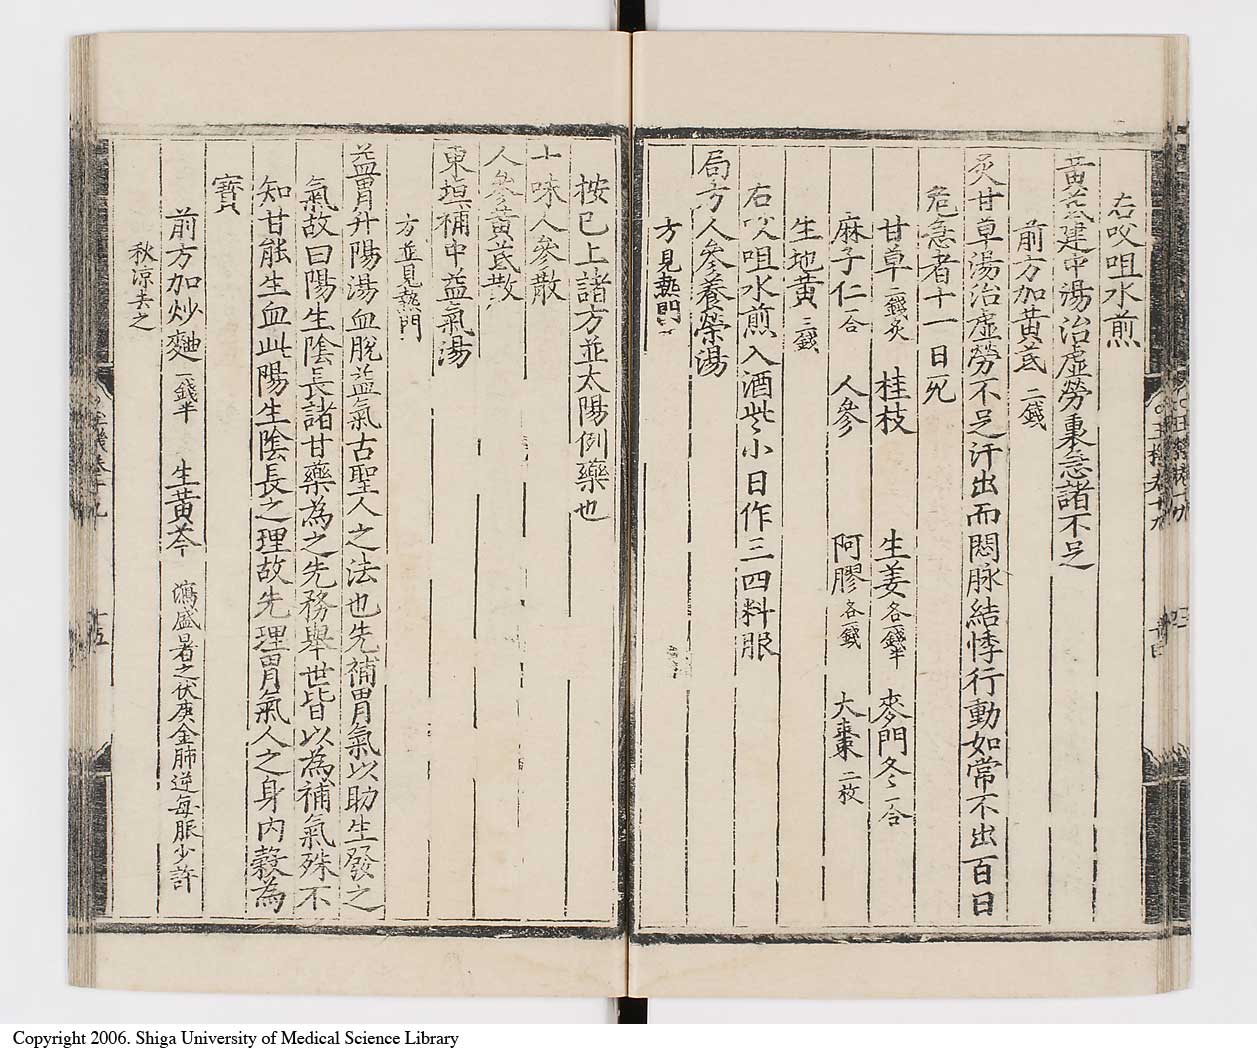 右㕮咀水煎
黃芪建中湯治虛勞裏急諸不足
前方加黃芪二錢
炙甘草湯治虛勞不足汗出而悶脉結悸行動如常不出百日
危急者十一日死
甘草二錢炙 桂枝 生姜各一錢半 麥門冬一合
麻子仁一合 人參 阿膠各一錢 大棗二枚
生地黃三錢
右㕮咀水煎入酒些小日作三四料服
局方人參養榮湯
方見熱門
按已上諸方並太陽例藥也
十味人參散
人參黃芪散
東垣補中益氣湯
方並見熱門
益胃升陽湯血脫益氣古聖人之法也先補胃氣以助生發之
氣故曰陽生陰長諸甘藥為之先務舉世皆以為補氣殊不
知甘能生血此陽生陰長之理故先理胃氣人之身內穀為
寶
前方加炒麯一錢半 生黃芩 瀉盛暑之伏庚金肺逆每服少許
秋凉去之
Copyright 2006. Shiga University of Medical Science Library